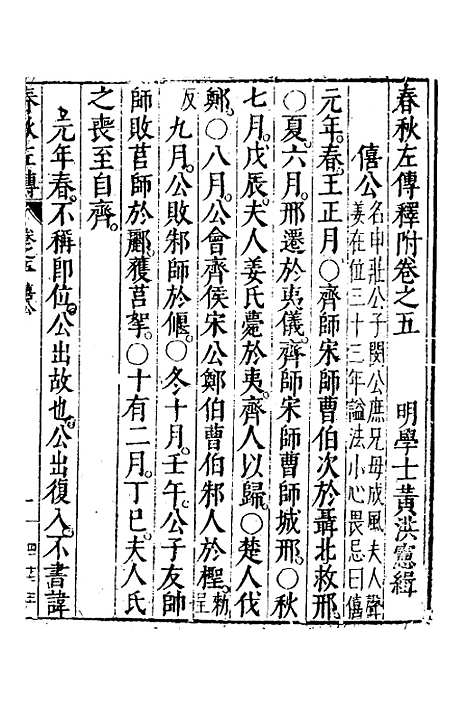 春秋左傳釋附卷之五　明學士黃洪憲緝
僖公名申莊公子閔公庶兄母成風夫人聲
姜在位三十三年謚法小心畏忌曰僖
元年春王正月○齊師宋師曹伯次於聶北救邢
○夏六月邢遷於夷儀齊師宋師曹師城邢○秋
七月戊辰夫人姜氏薨於夷齊人以歸○楚人伐
鄭○八月公會齊侯宋公鄭伯曹伯邾人於檉勑呈
反九月公敗邾師於偃○冬十月壬午公子友帥
師敗莒師於酈獲莒挐○十有二月丁巳夫人氏
之喪至自齊
元年春不稱即位公出故也公出復入不書諱
春秋左傳　卷之五　僖公